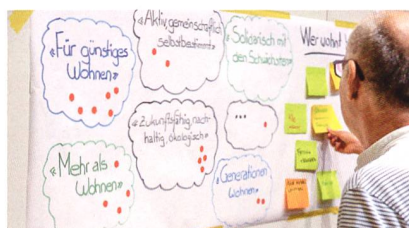 «Für günstiges
Wohnen»
«Aktiv, gemeinschaftlich
selbstbestimmt»
Solidarisch mit
den Schwächsten
Wer wohnt
«Zukunftsfähig, nach-
haltig, ökologisch»
...
Mehr als
Wohnen»
Generationen
Wohnen»